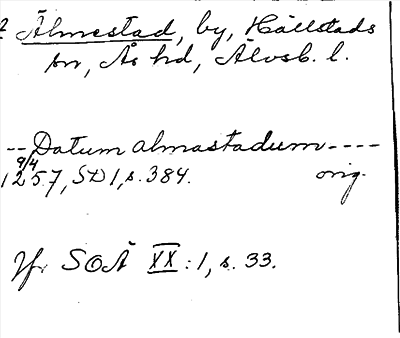 Älmestad, by, Hällstads
sn, Ås hd, Älvsb. l.
-- Datum almastadum ----
9/4
1257, SD 1, s. 384. orig.
Jfr SOÄ XX: 1, s. 33.